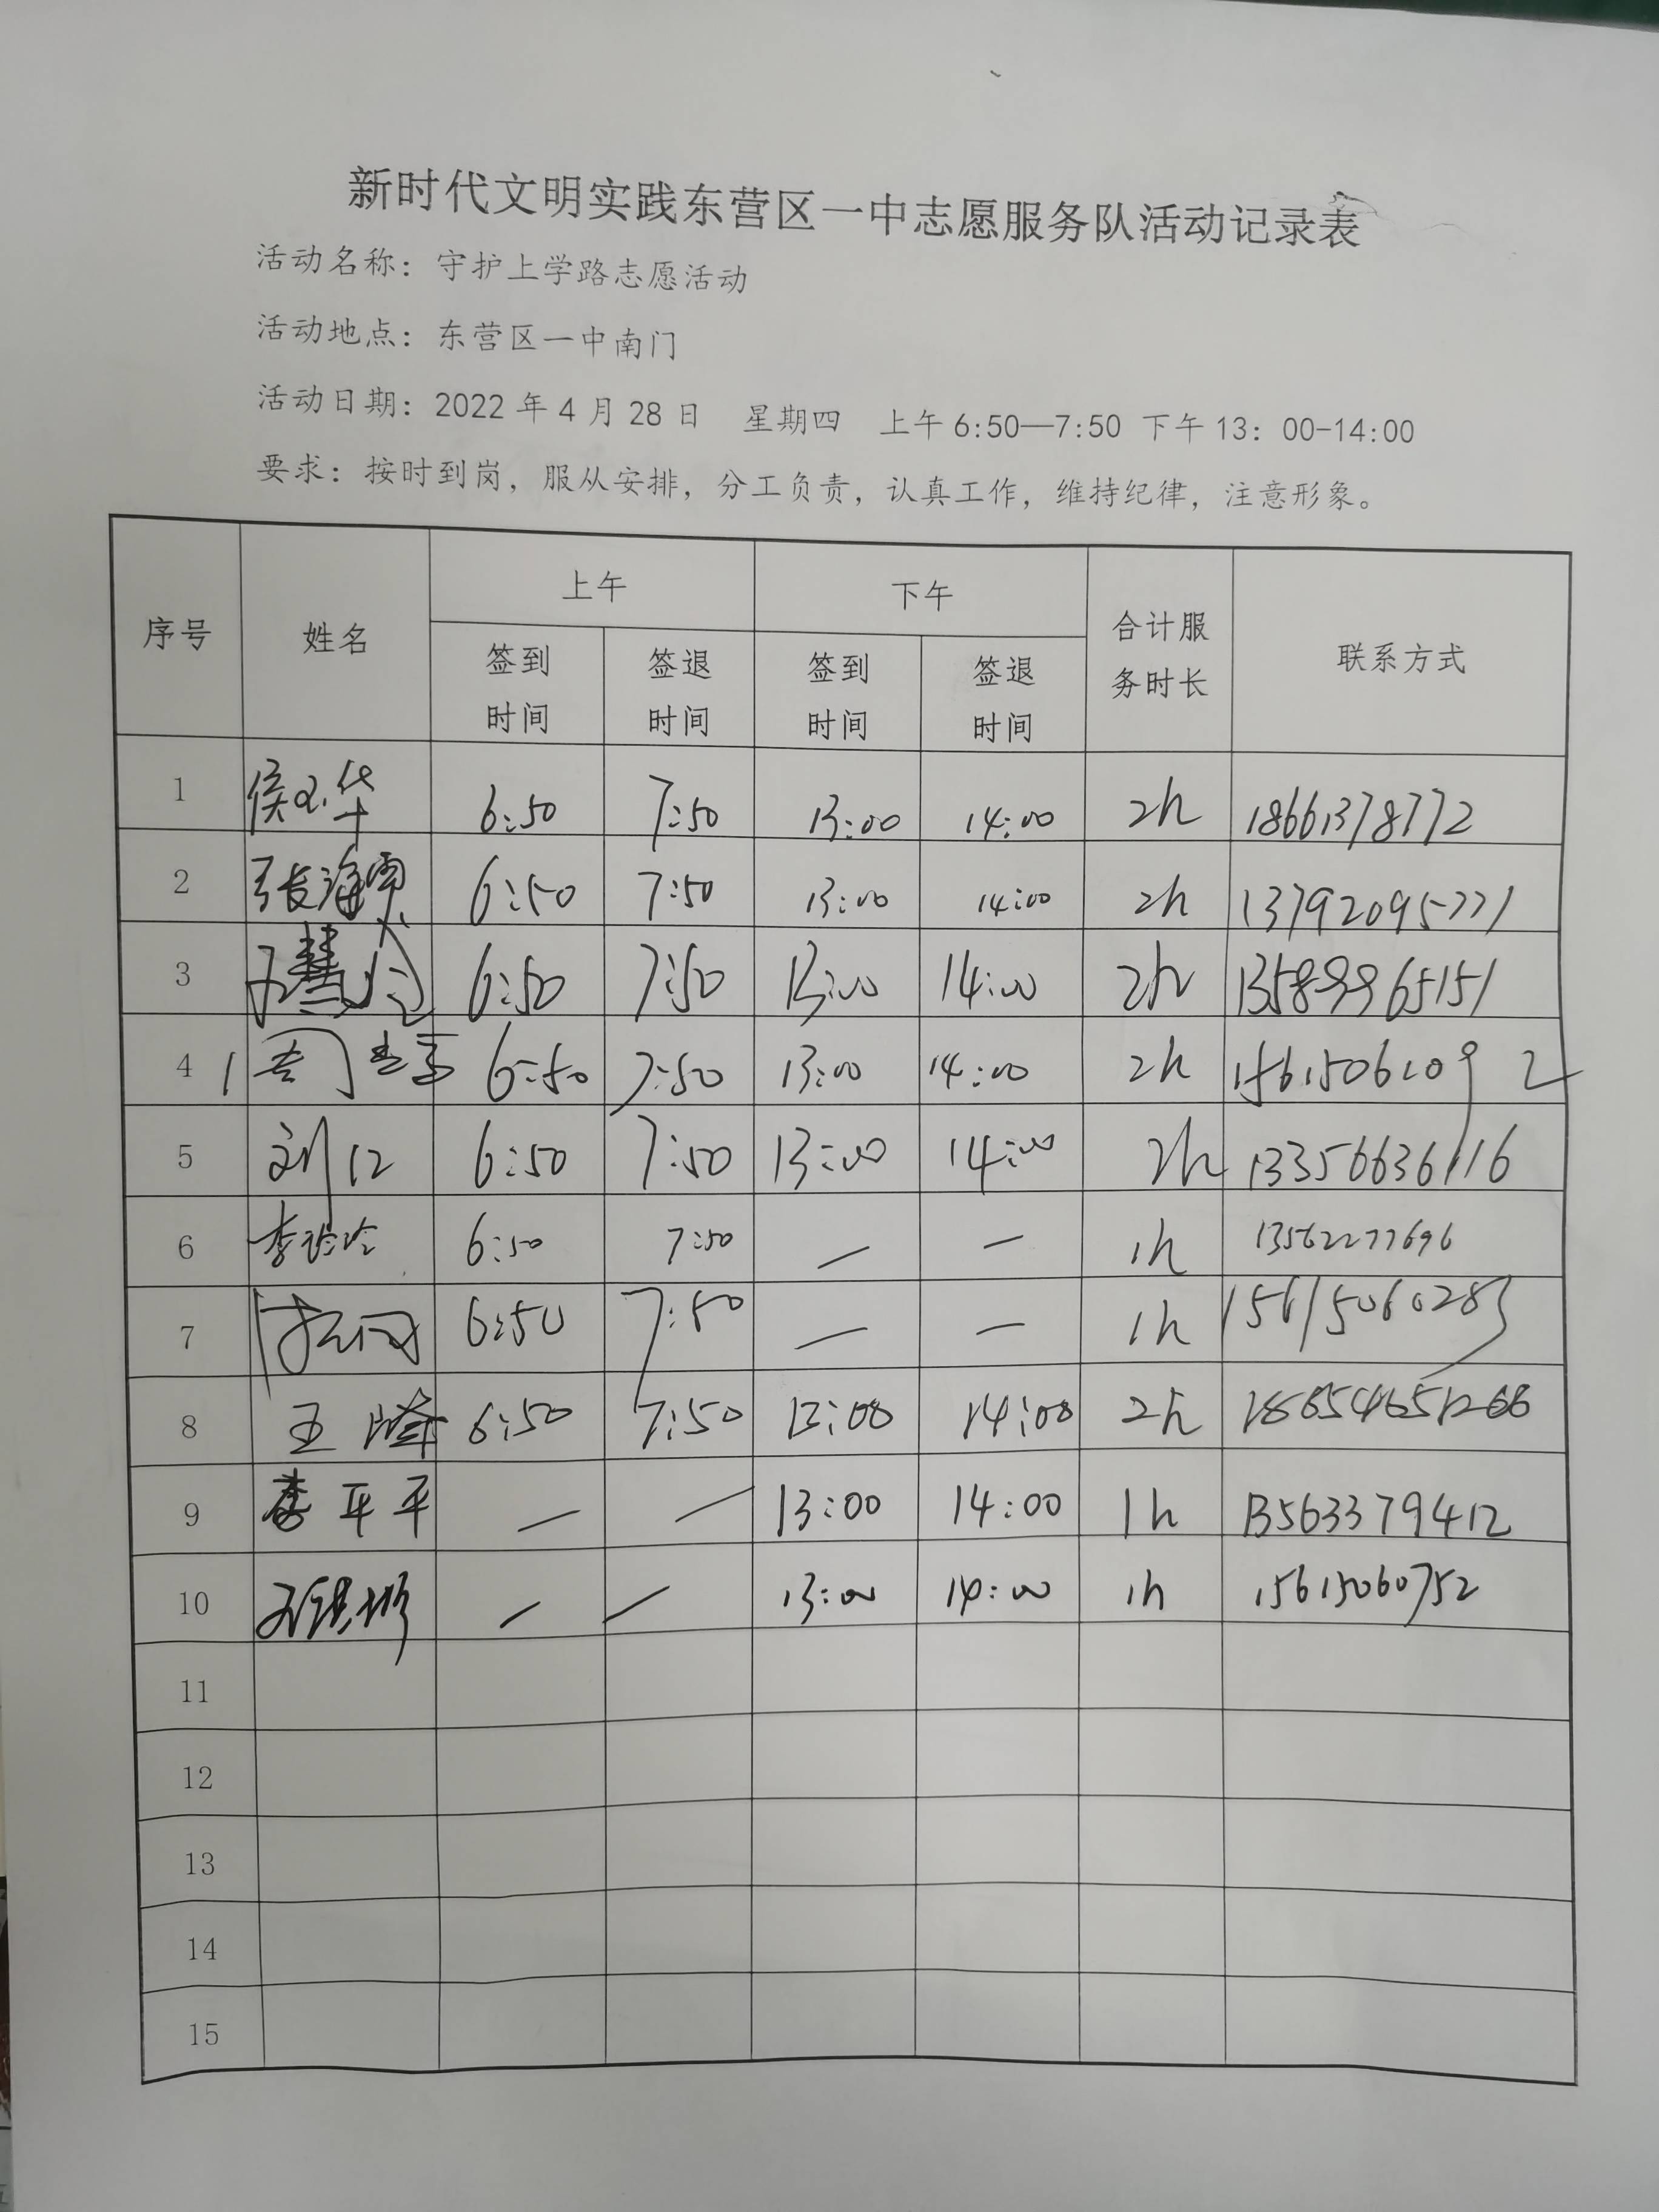 新时代文明实践东营区一中志愿服务队活动记录表
活动名称：守护上学路志愿活动
活动地点：东营区一中南门
活动日期：2022年4月28日 星期四 上午6:50—7:50 下午13：00-14:00
要求：按时到岗，服从安排，分工负责，认真工作，维持纪律，注意形象。
序号 姓名 上午 下午 合计服务时长 联系方式
签到时间 签退时间 签到时间 签退时间
1 6:50 7:50 13:00 14:00 2h 18661378772
2 6:50 7:50 13:00 14:00 2h 13792095771
3 6:50 7:50 13:00 14:00 2h 13589965151
4 6:50 7:50 13:00 14:00 2h
5 6:50 7:50 13:00 14:00 2h 13356636116
6 李玲玲 6:50 7:50 — — 1h 13562277696
7 6:50 7:50 — — 1h 15615060283
8 王峰 6:50 7:50 13:00 14:00 2h
9 李平平 — — 13:00 14:00 1h 13563379412
10 — — 13:00 14:00 1h 15615060752
11
12
13
14
15